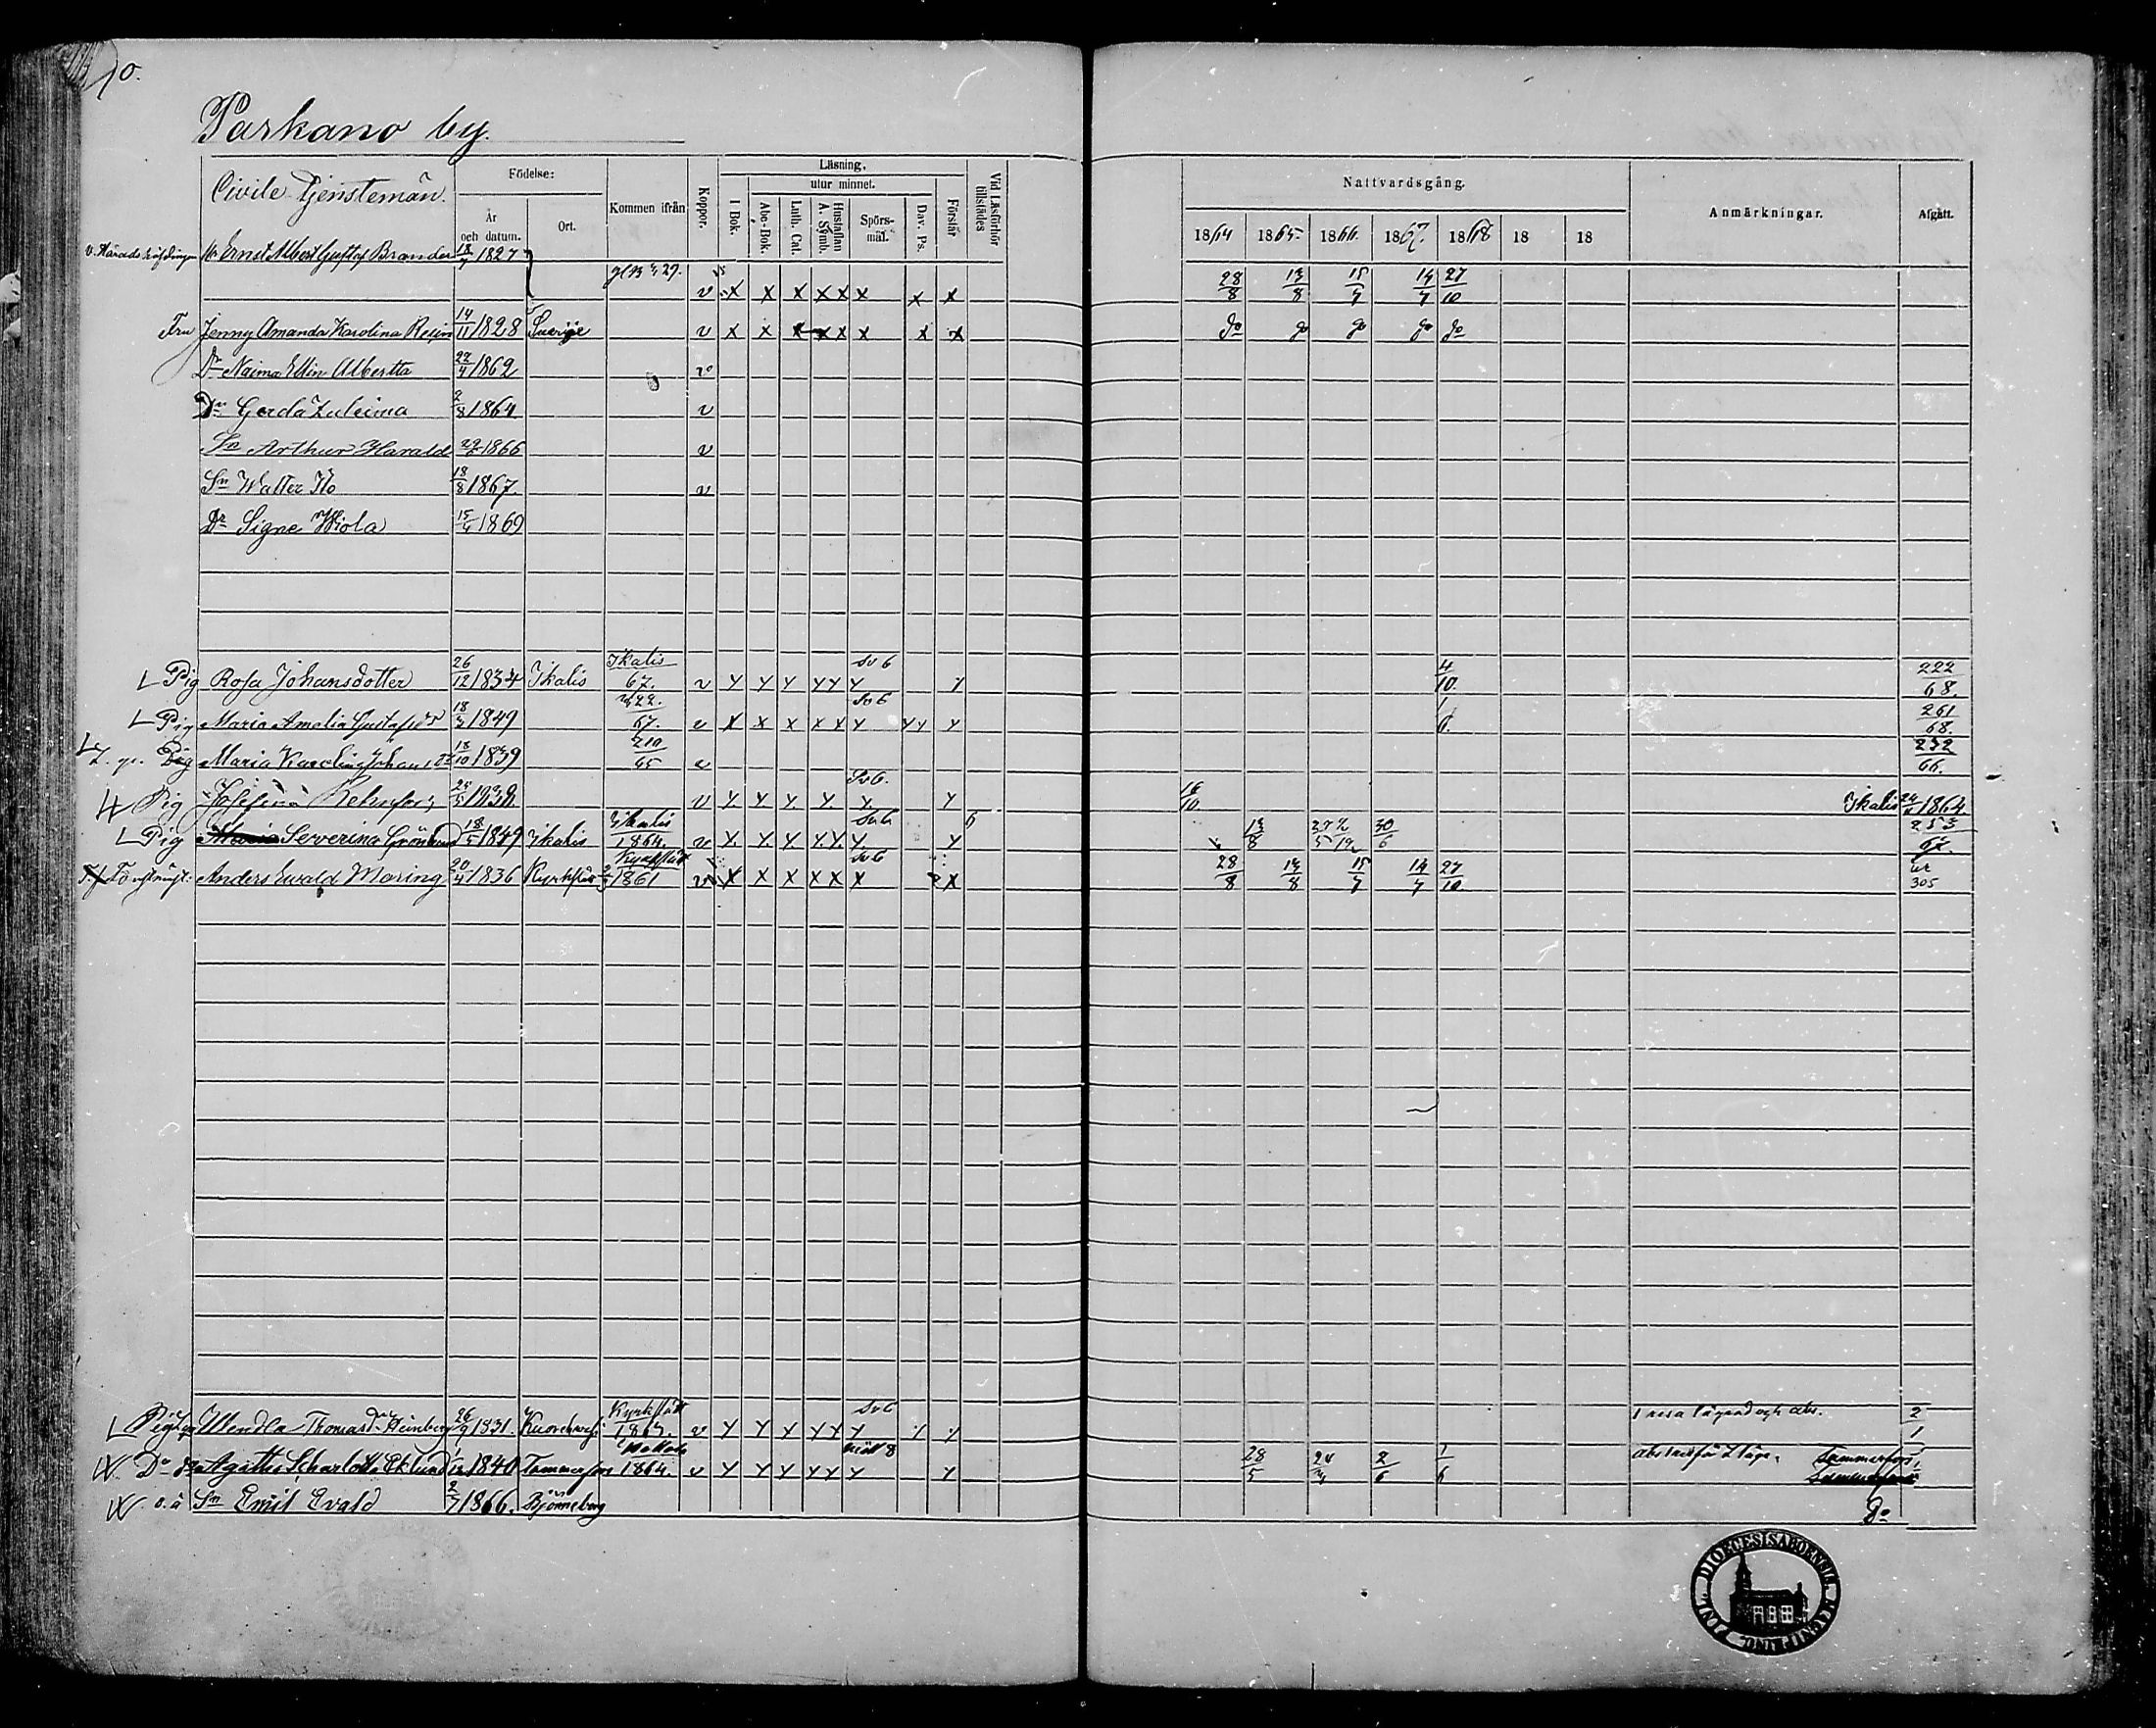 Parkano by.
Civile Tjenstemän.
Födelse:
År och datum.
Ort.
Kommen ifrån
Koppor.
Läsning.
I Bok.
utur minnet.
Abc-Bok.
Luth. Cat.
Hustaflan A. Symb.
Spörsmål.
Dav. Ps.
Förstår
Vid Läsförhör tillstädes
Nattvardsgång.
1864 1865 1866 1867 1868 18 18
Anmärkningar.
Afgått.
v. Häradshöfdingen Ernst Albert Gustaf Brander 18/7 1827 v x x x x x x x x 28/8 13/8 15/7 14/7 27/10
Fru Jenny Amanda Karolina 14/11 1828 Sverige v x x x x x x x x do do do do do
Dr Naima Ellin Albertta 22/4 1862 v
Dr Gerda Zuleima 2/8 1864 v
Sn Arthur Harald 1866 v
Sn Walter Ilo 18/8 1867. v
Dr Signe Wiola 15/4 1869
Pig Rosa Johansdotter 26/12 1834 Ikalis Ikalis 67. v y y y y y y Sv 6 y 4/10. 222/68.
Pig Maria Amalia Gustafsdr 18/3 1849 67. v x x x x x y Sv 6 y y y 261/68.
Pig Maria Karolina Johansdr 18/10 1839 210/65 v 232/66.
Pig Josefina v y y y y y Sv 6. y 16/10 Ikalis 1864.
Pig Severina Grönlund 18/5 1849 Ikalis Ikalis 1864. v y y y y y y Sv 6 y 6 13/8 30/6 253/67.
Anders Ewald Moring 20/4 1836 Kyrkslätt Kyrkslätt 1861 v x x x x x x Sv 6 x 28/8 13/8 15/7 14/7 27/10 305
Pig Wendla Thomasdr 26/9 1831. Kyrkslätt 1863. v y y y y y y Sv 6 y y 2/1
Do Agatha Scharlotta Eklund 1/12 1840 Tammerfors 1864. v y y y y y y y 28/5 2/6 1/6 Tammerfors
o. ä Sn Emil Evald 2/7 1866. Björneborg do